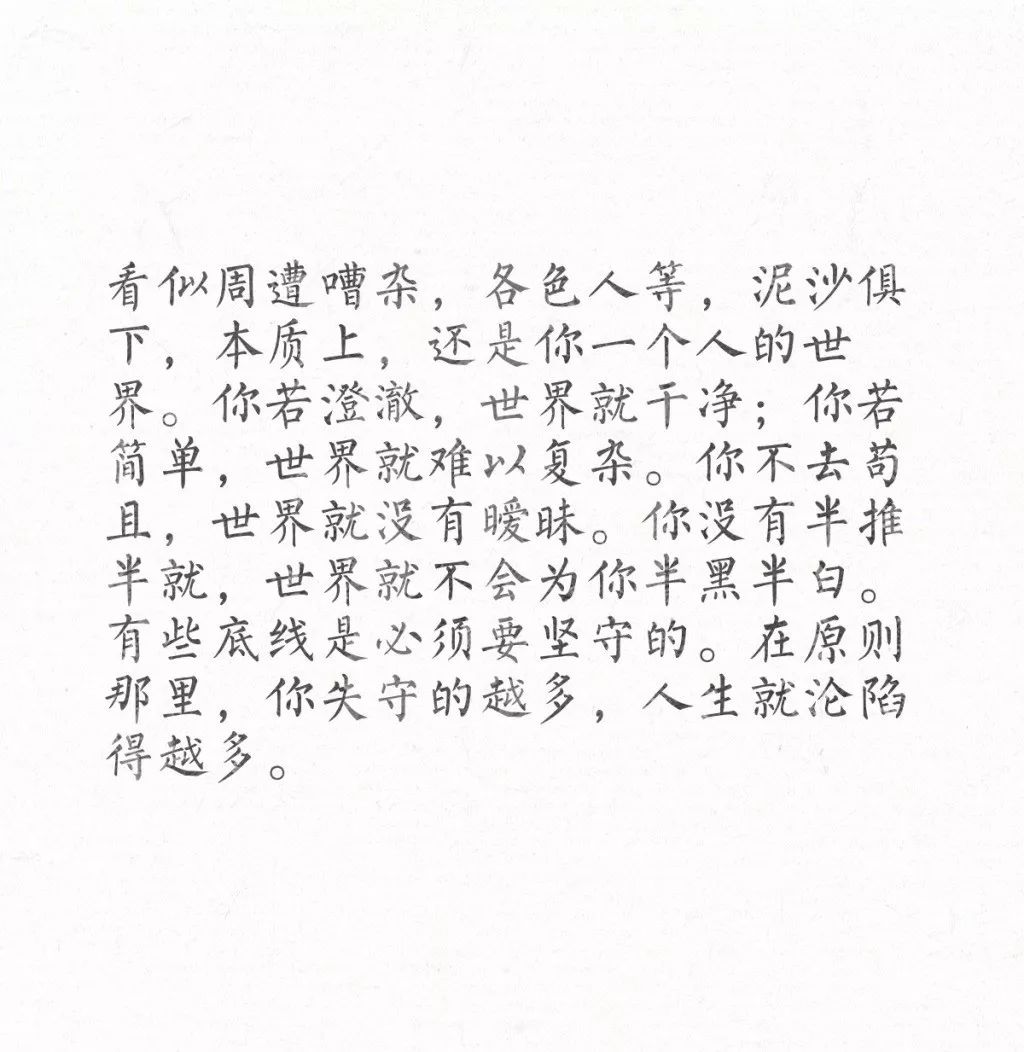 看似周遭嘈杂，各色人等，泥沙俱
下，本质上，还是你一个人的世
界。你若澄澈，世界就干净；你若
简单，世界就难以复杂。你不去苟
且，世界就没有暧昧。你没有半推
半就，世界就不会为你半黑半白。
有些底线是必须要坚守的。在原则
那里，你失守的越多，人生就沦陷
得越多。